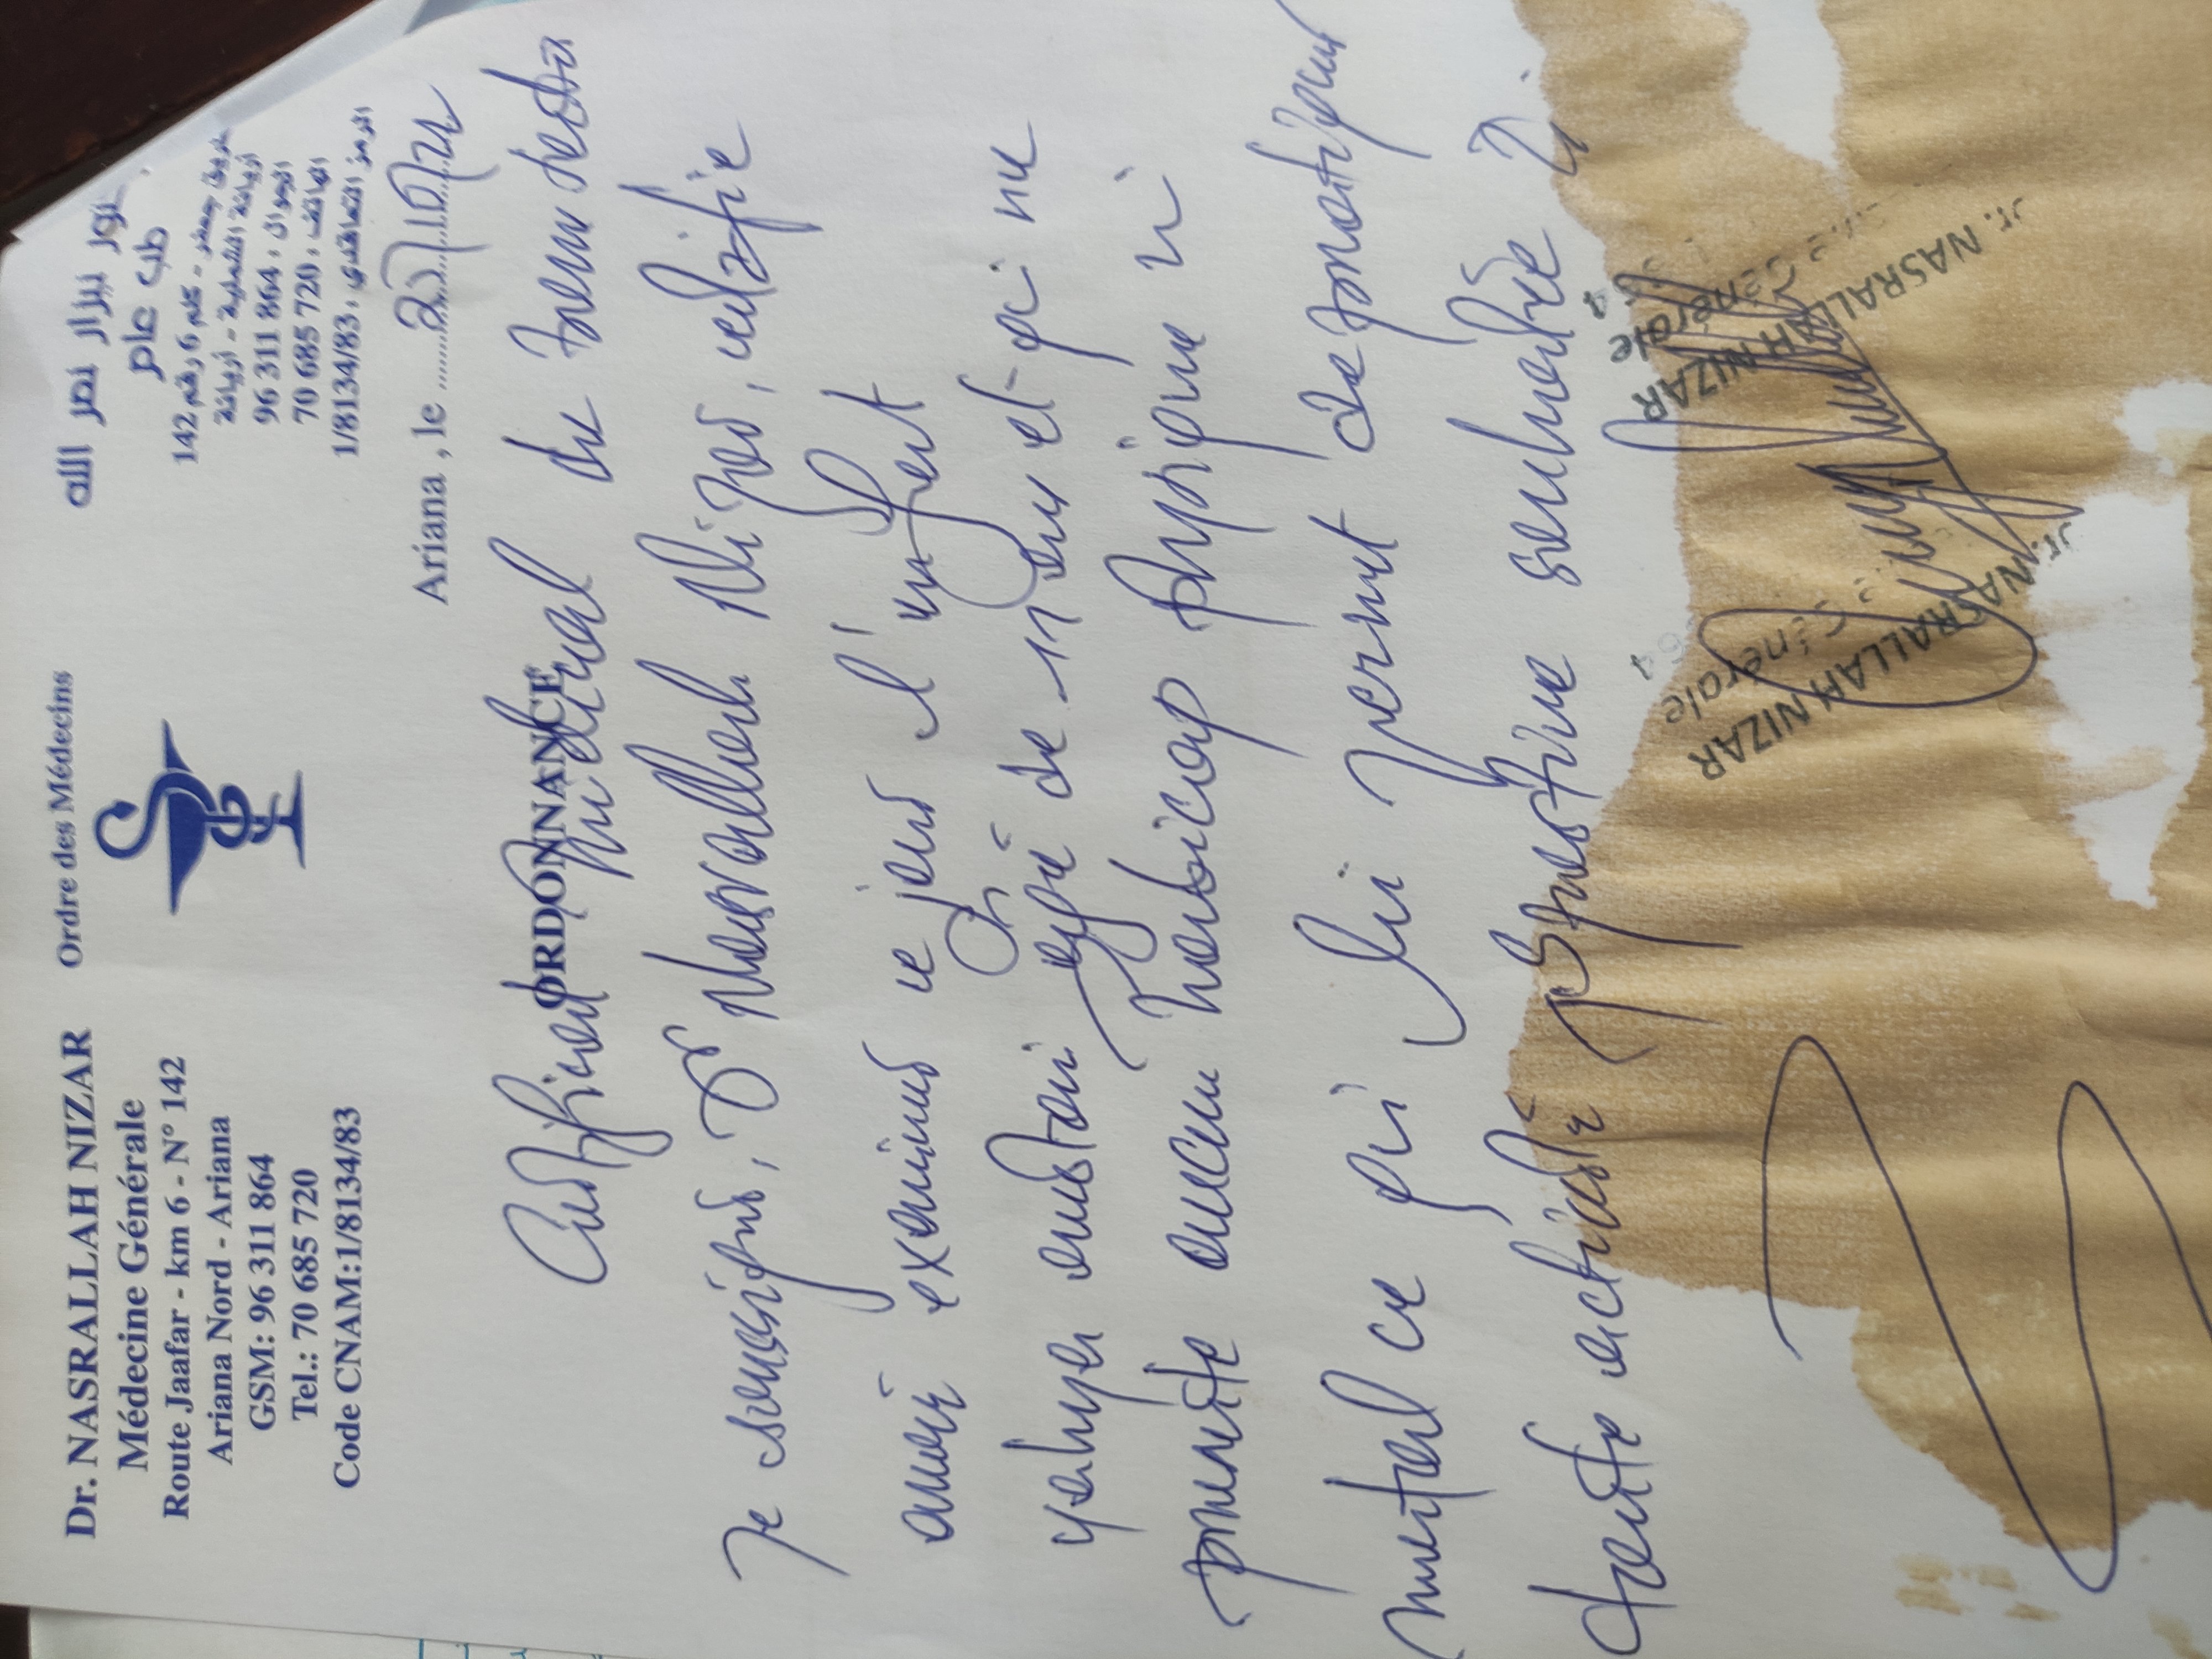 Dr. NASRALLAH NIZAR
Médecine Générale
Route Jaafar - km 6 - N° 142
Ariana Nord - Ariana
GSM: 96 311 864
Tel.: 70 685 720
Code CNAM:1/8134/83
Ordre des Médecins
نزار نصر الله
طب عام
طريق جعفر - كلم 6 رقم 142
أريانة الشمالية - أريانة
الجوال : 96 311 864
الهاتف : 70 685 720
الرمز التعاقدي : 1/8134/83
Ariana , le
ORDONNANCE
Certificat médical de bonne santé
Je soussigné, Dr Nasrallah Nizar, certifie
avoir examiné ce jour l'enfant
agé de 11 ans et qui ne
présente aucun handicap physique ni
mental ce qui lui permet de pratiquer
toute activité sportive
Dr. NASRALLAH NIZAR
Générale
Dr. NASRALLAH NIZAR
Générale